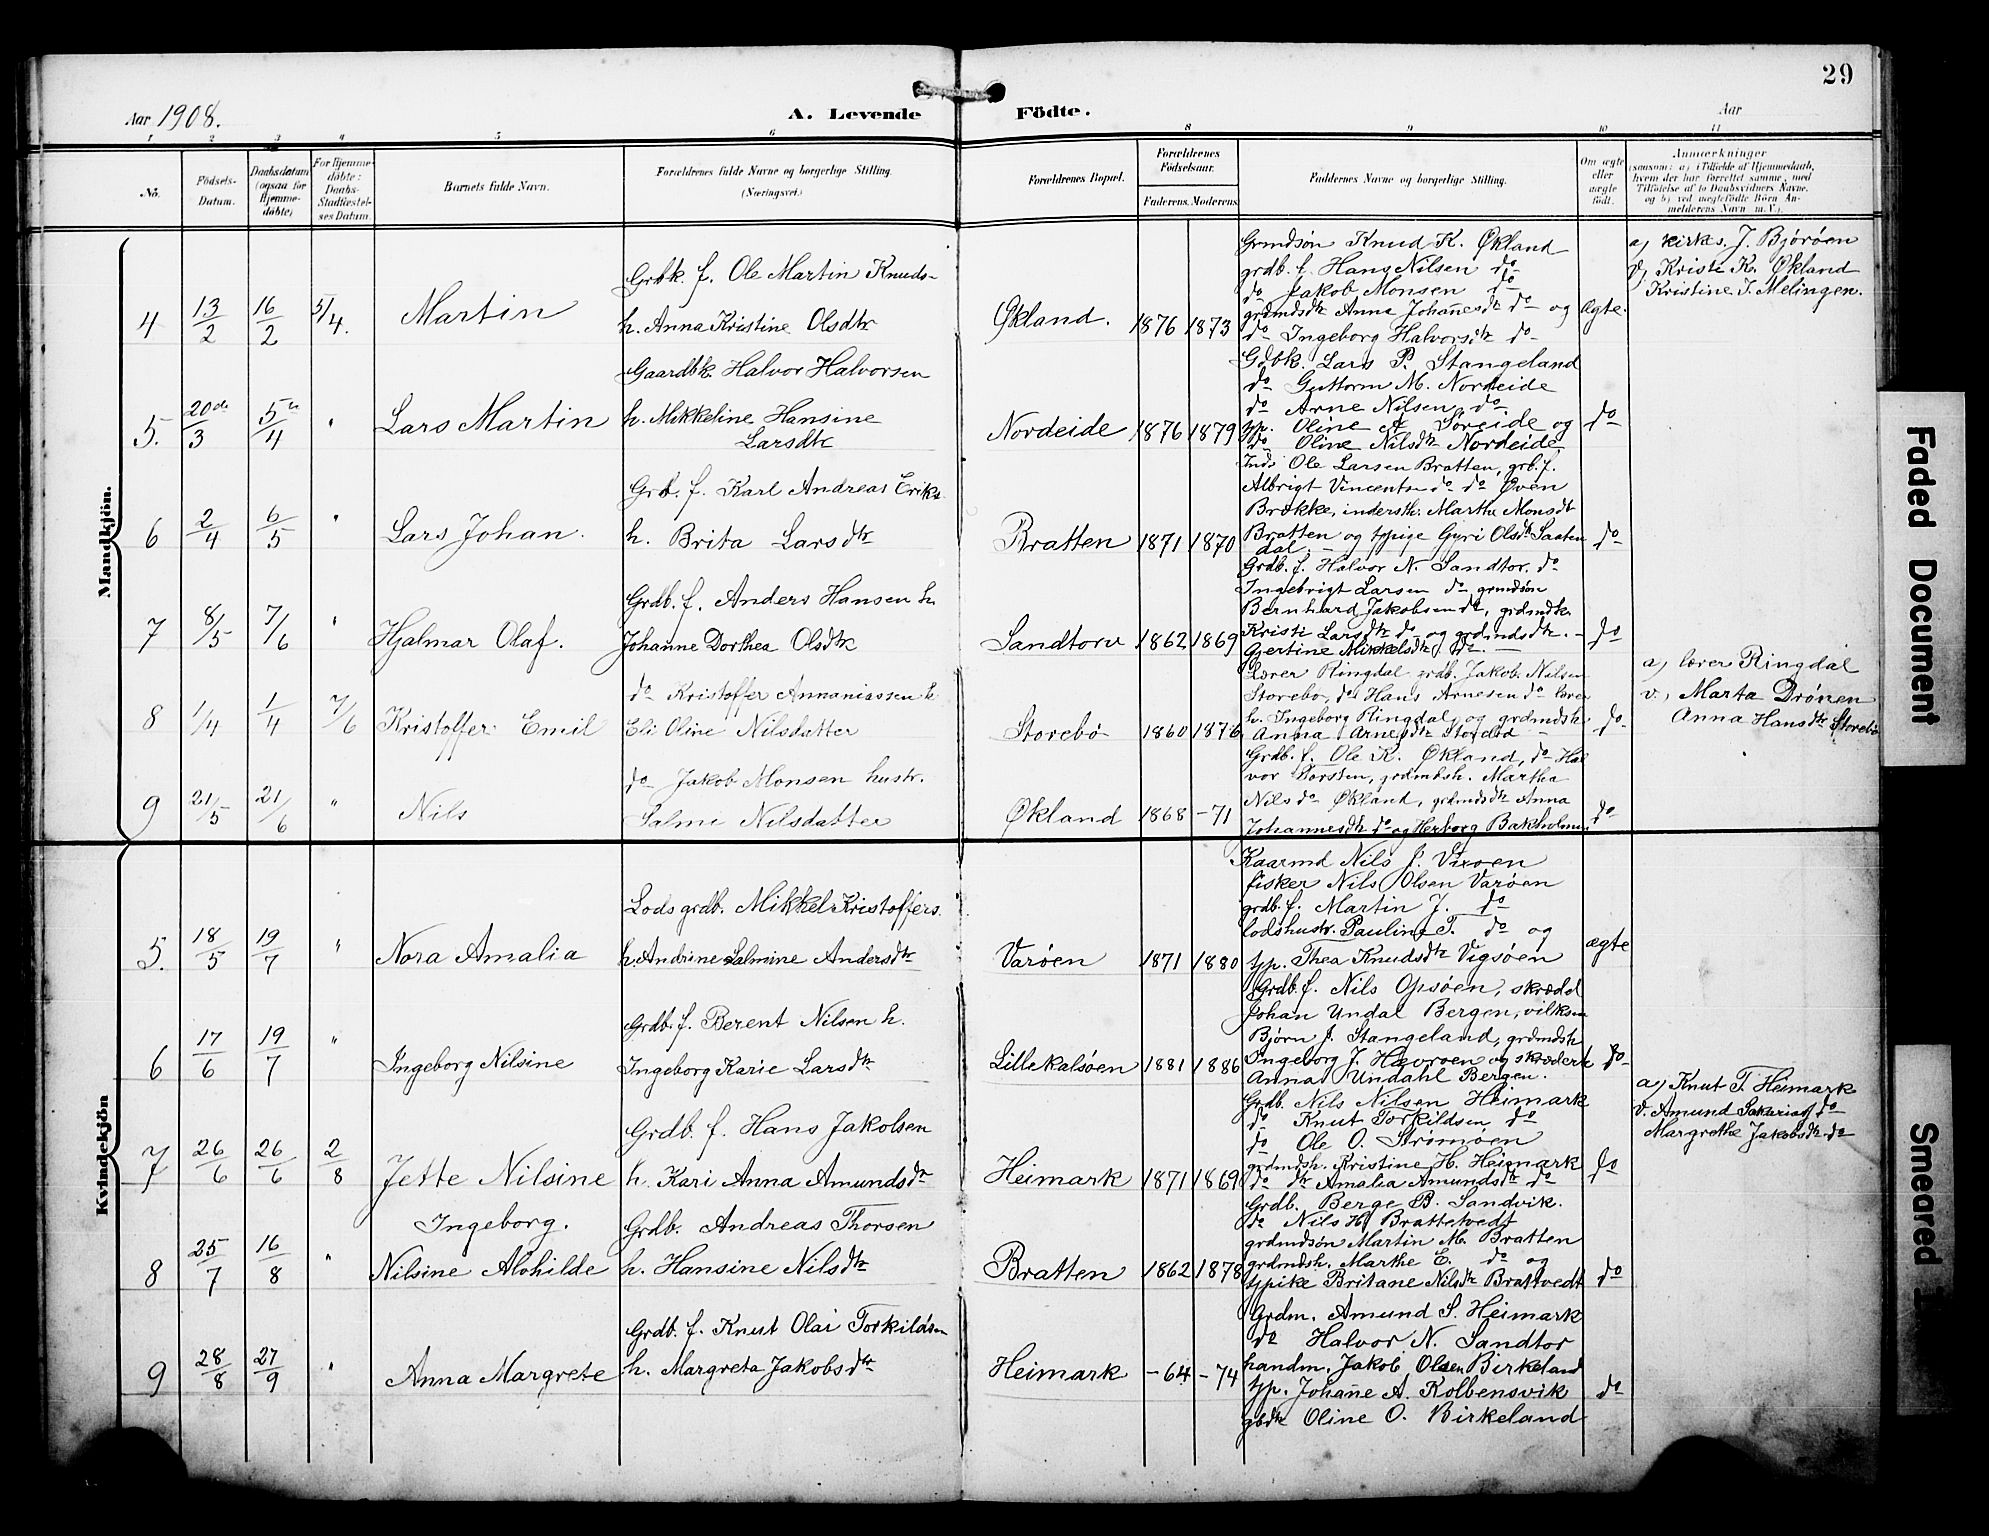 29
Aar 1908.
A. Levende Födte.
Aar
1 2 3 4 5 6 8 9 10 11
No.
Födsels-
Datum.
Daabsdatum
(ogsaa for
Hjemme-
døbte)
For Hjemme-
døbte:
Daabs-
Stadfæstel-
ses Datum.
Barnets fulde Navn.
Forældrenes fulde Navne og borgerlige Stilling.
(Næringsvei.)
Forældrenes Bopæl.
Forældrenes
Födselsaar.
Faderens. Moderens.
Faddernes Navne og borgerlige Stilling.
Om ægte
eller
uægte
født.
Anmærkninger
(saasom: a) i Tilfælde af Hjemmedaab,
hvem der har forrettet samme, med
Tilföielse af to Daabsvidners Navne.
og b) ved uægtefödte Börn An-
melderens Navn m. V.).
Mandkjön.
4 13/2 16/2 5/4. Martin
Grbk. f. Ole Martin Knuds-
h. Anna Kristine Olsdtr
Økland. 1876 1873
Grmdsön Knud K. Økland
grdb. f. Hans Nilsen do
do Jakob Monsen do
grdmdsdtr Anna Johannesdtr do og
do Ingeborg Halvorsdtr do
Ægte.
a) kirks. J. Björöen
v, Kristi K. Økland
Kristine J. Melingen.
5. 20de/3 5te/4 " Lars Martin
Gaardbk. Halvor Halvorsen
h. Mikkeline Hansine
Larsdtr
Nordeide 1876 1879
Gdbk. Lars P. Stangeland
do Guttorm M. Nordeide
do Arne Nilsen do
tjp. Oline Søreide og
do Oline Nilsdtr Nordeide
do
6 2/4 6/5 " Lars Johan.
Grb. f. Karl Andreas Eriks
h. Brita Larsdtr
Bratten 1871 1870
Inds Ole Larsen Bratten, grb. f.
Albrigt Vincentsn do do Øven
Brække, indersth. Marthe Monsdt
Bratten og tjpige Gyri Olsdtr Saaten
dal. —
do
7 8/5 7/6 " Hjalmar Olaf.
Grdb. f. Anders Hansen h.
Johanne Dorthea Olsdtr
Sandtorv 1862 1869
Grdb. f. Halvor N. Sandtor. do
Ingebrigt Larsen do grmdsön
Bernhard Jakobsen do, grdmdk.
Kristi Larsdtr do og grdmdsdtr. -
Gjertine Mikkelsdtr do. —
do
8 1/4 1/4 7/6 Kristoffer Emil
do Kristoffer Annaniassen h.
Eli Oline Nilsdatter
Storebö 1860 1876
Lærer Ringdal grdb. Jakob Nilsen
Storebö, do Hans Arnesen do lærer
h. Ingeborg Ringdal og grdmdsh.
Anna Arnesdtr Storebö —
do
a) lærer Ringdal
v, Marta Drönen
Anna Hansdtr Storebö
9 21/5 21/6 " Nils
do Jakob Monsen hustr.
Salmi Nilsdatter
Økland 1868 -71
Grdb. f. Ole K. Økland, do Hal
vor Torsten, grdmdsh. Martha
Nils do Økland, grdmdsdtr Anna
Johannesdtr do og Herborg Bakholm.
do
Kvindekjön
5. 18/5 19/7 " Nora Amalia
Lods grdb. Mikkel Kristoffers.
h. Andrine Salmine Andersdtr
Varøen 1871 1880
Kaarmd Nils J. Vixoen
fisker Nils Olsen Varöen
grdb. f. Martin J. do
lodshustr. Pauline T. do og
tjp. Thea Knudsdtr Vigsöen
ægte
6 17/6 19/7 " Ingeborg Nilsine
Grdb. f. Berent Nilsen h.
Ingeborg Karie Larsdtr
Lillekalsøen 1881 1886
Grdb. f. Nils Opsøen, skrædd
Johan Undal Bergen, vilksm
Björn J. Stangeland, grdmdsh
Ingeborg J. Hevroen og skræderk
Anna Undahl Bergen.
do
7 26/6 26/6 2/8 Jette Nilsine
Ingeborg.
Grdb. f. Hans Jakobsen
h. Kari Anna Amundsdtr
Heimark 1871 1869
Grdb. Nils Nilsen Heimark
do Knut Torkildsen do
do Ole O. Strömöen
grdmdsh. Kristine H. Heimark
do dtr Amalia Amundsdtr do
do
a) Knut T. Heimark
v. Amund Sakarias do
Margrethe Jakobsdtr do
8 25/7 16/8 " Nilsine Alvhilde
Grdb. Andreas Thorsen
h. Hansine Nilsdtr
Bratten 1862 1878
Grdb. Berge B. Sandvik.
do Nils H. Brattetvedt
grdmdsön Martin M. Bratten
grdmdsh. Marthe E. do og
tjpike Britane Nilsdtr Brattvedt
do
9 28/8 27/9 " Anna Margrete
Grdb. f. Knut Olai Torkildsen
h. Margreta Jakobsdtr
Heimark -64 -74
Grdm. Amund S. Heimark
do Halvor N. Sandtor
handm. Jakob Olsen Birkeland
tjp. Johanne A. Kolbensvik
gbdtr Oline O. Birkeland
do
Faded Document
Smeared